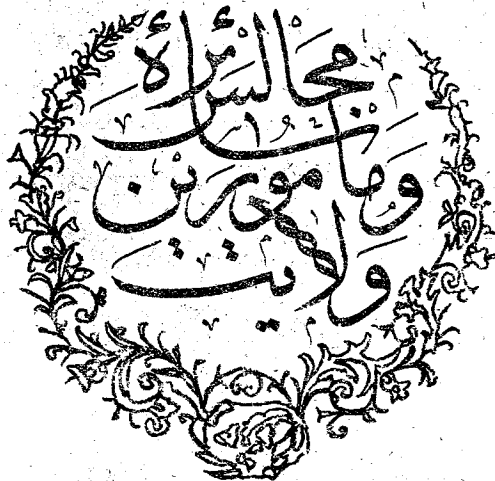 مجالس سائره
ومامورين
ولايت